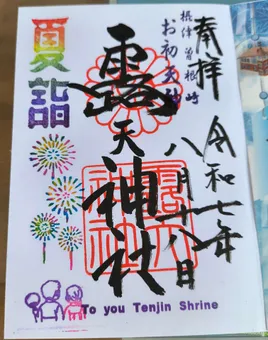 奉拝
令和七年
八月十八日
摂津 曽根崎
お初天神
露天神社
夏詣
To you Tenjin Shrine